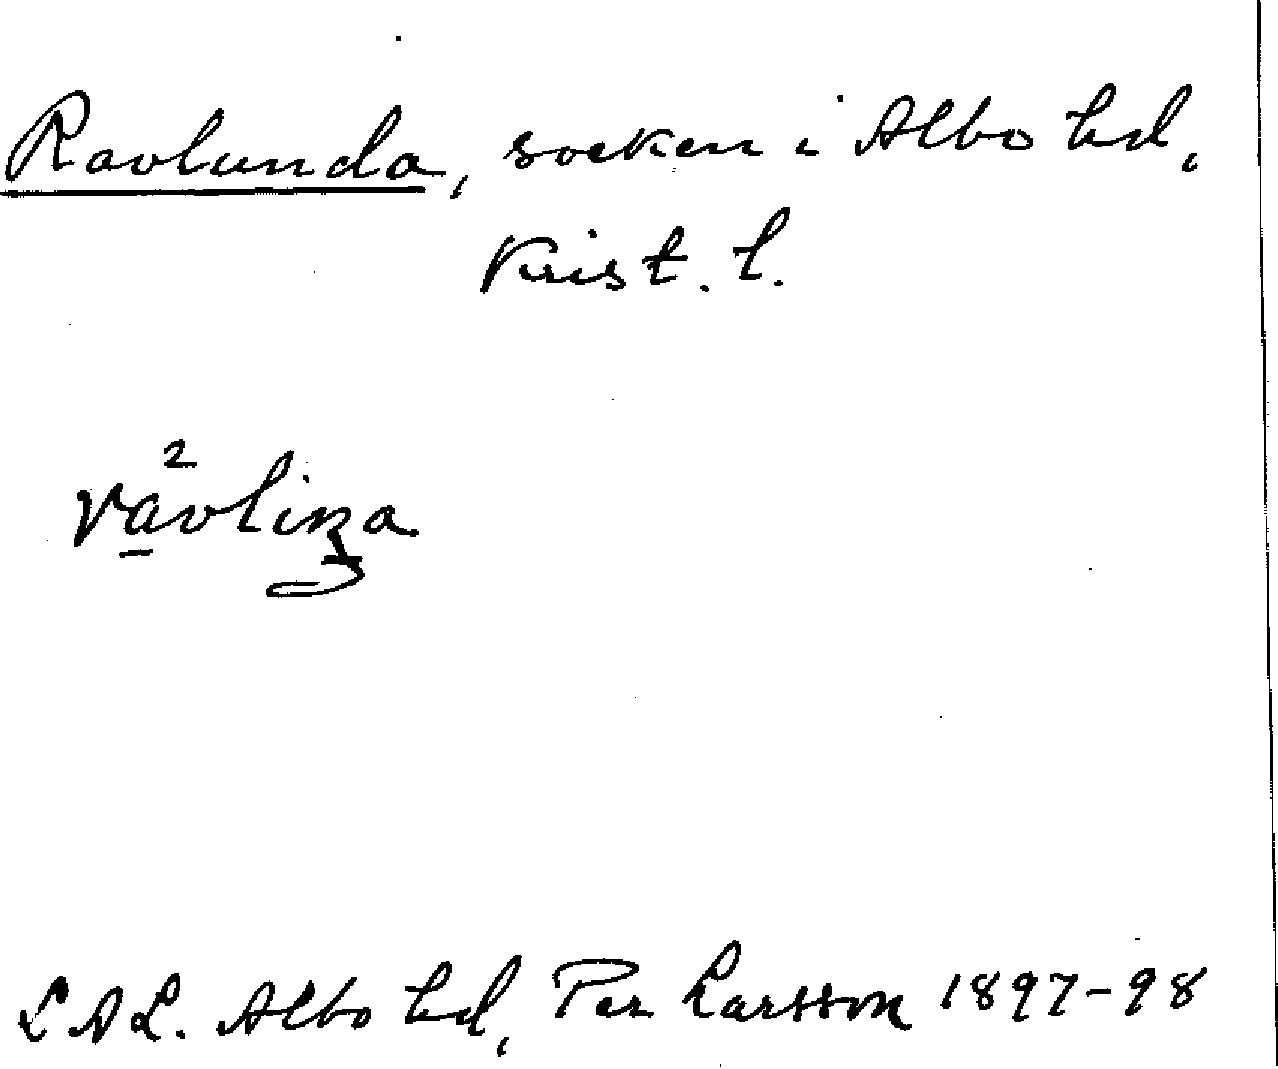 Ravlunda, socken i Albo hd,
Krist. l.
LAL. Albo hd, Per Larsson 1897-98